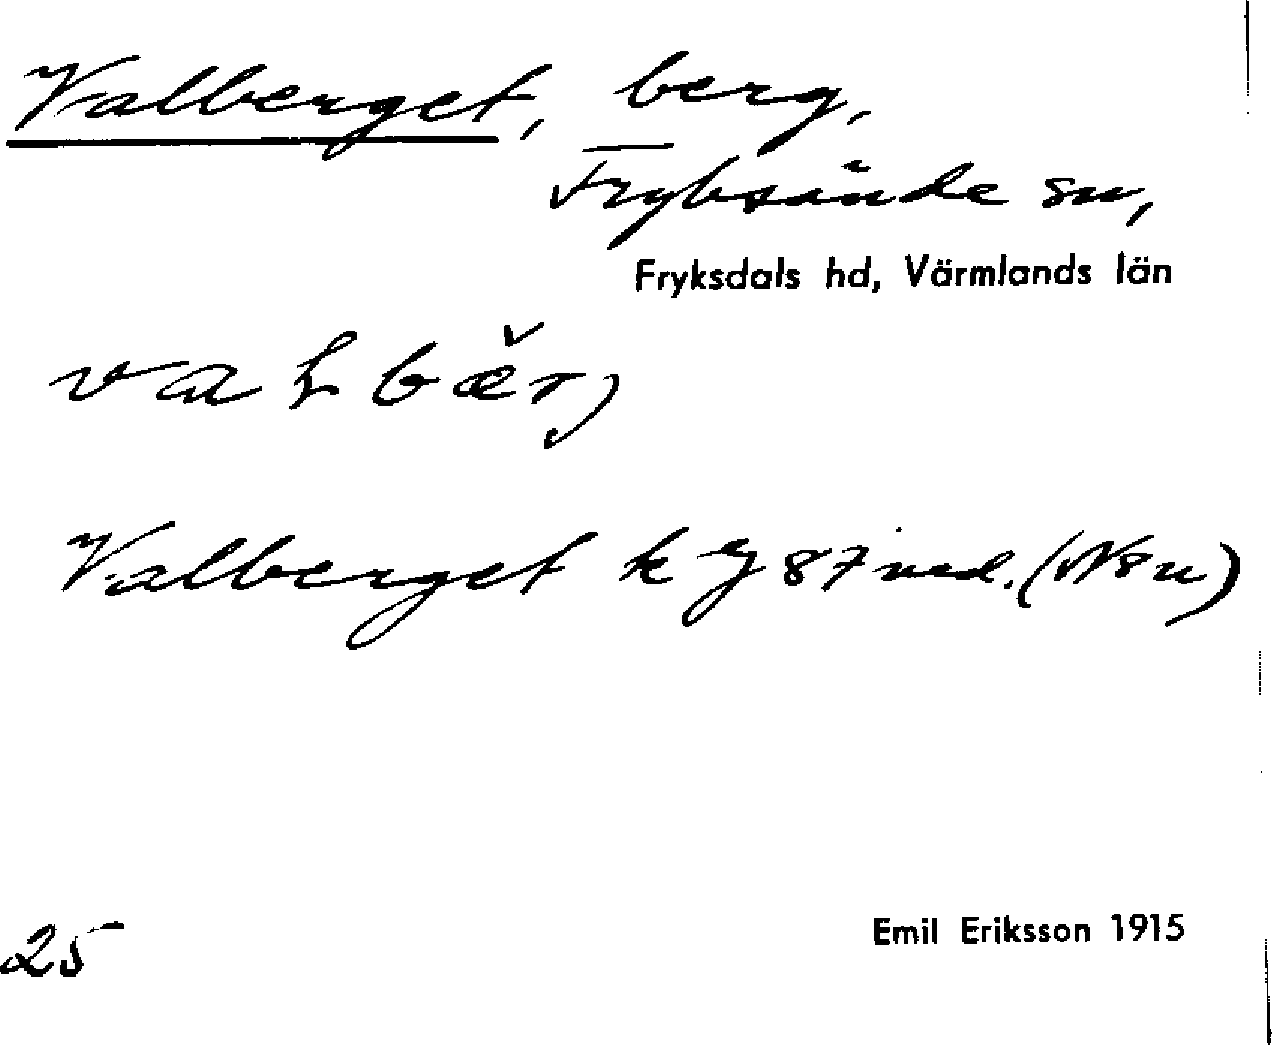 Valberget, berg,
Fryksände sn,
Fryksdals hd, Värmlands län
Valberget k y 87 (Nsn)
25
Emil Eriksson 1915